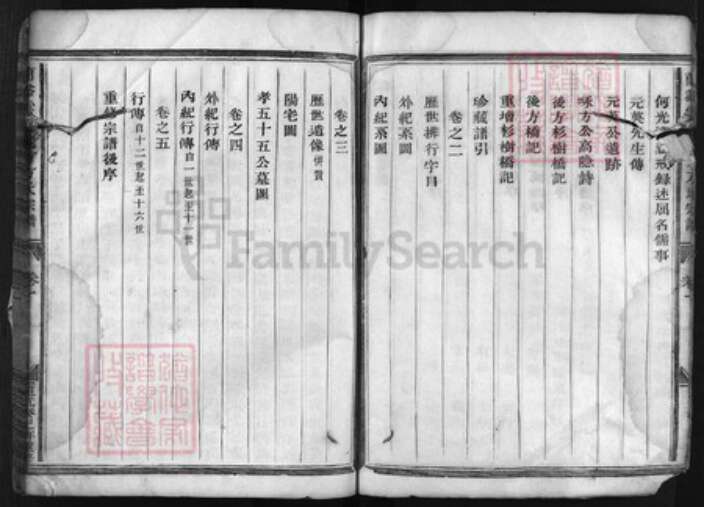 何光遠鑑戒録述屈名儒事
元英先生傳
元英公遺跡
咏方公高隐詩
後方杉樹橋記
後方橋記
重增杉樹橋記
珍藏譜引
卷之二
歷世排行字目
外紀系圖
內紀系圖
卷之三
歷世遺像併贊
陽宅圖
孝五十五公墓圖
卷之四
外紀行傳
內紀行傳自一世起至十一世
卷之五
行傳自十二世起至十六世
重修宗譜後序
FamilySearch